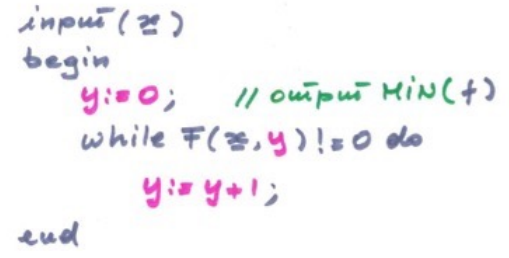 input(x)
begin
y:=0; // output MIN(f)
while F(x,y)!=0 do
y:=y+1;
end